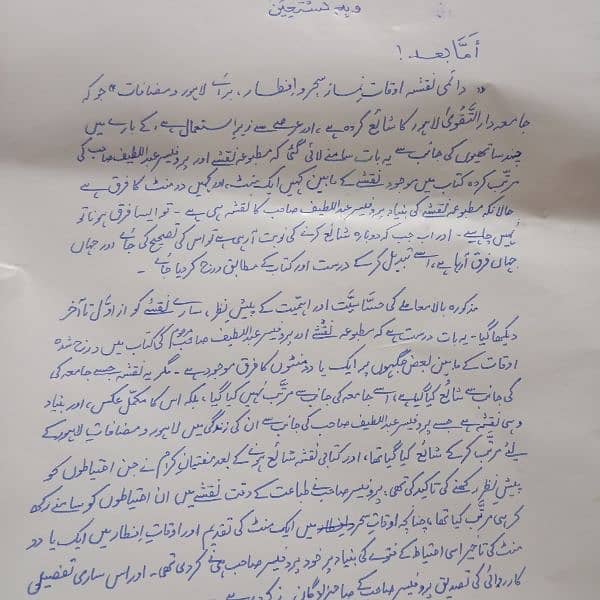 وبہ نستعین
أمَّا بعد !
" دائمی نقشہ اوقاتِ نماز سحر و إفطار، برائے لاہور و مضافات " جو کہ
جامعہ دارالتَّقویٰ لاہور کا شائع کردہ ہے، اور عرصے سے زیرِ استعمال ہے، کے بارے میں
چند ساتھیوں کی جانب سے یہ بات سامنے لائی گئی کہ مطبوعہ نقشے اور پروفیسر عبداللطیف صاحب کی
مرتّب کردہ کتاب میں موجود نقشے کے مابین کہیں ایک منٹ، اور کہیں دو منٹ کا فرق ہے
حالانکہ مطبوعہ نقشہ کی بنیاد پروفیسر عبداللطیف صاحب کا نقشہ ہی ہے ۔ تو ایسا فرق ہونا تو
نہیں چاہیے ۔ اور اب جب کہ دوبارہ شائع کرنے کی نوبت آرہی ہے تو اس کی تصحیح کی جائے اور جہاں
جہاں فرق آرہا ہے، اسے تبدیل کر کے درست اور کتاب کے مطابق درج کردیا جائے ۔
مذکورہ بالا معاملے کی حسّاسیّت اور اہمیّت کے پیشِ نظر، سارے نقشے کو از اوّل تا آخر
دیکھا گیا ۔ یہ بات درست ہے کہ مطبوعہ نقشے اور پروفیسر عبداللطیف صاحب مرحوم کی کتاب میں درج شدہ
اوقات کے مابین بعض جگہوں پر ایک یا دو منٹوں کا فرق موجود ہے ۔ مگر یہ نقشہ جسے جامعہ کی
کی جانب سے شائع کیا گیا ہے، اسے جامعہ کی جانب سے مرتّب نہیں کیا گیا، بلکہ اس کا مکمّل عکس، اور بنیاد
وہی نقشہ ہے جسے پروفیسر عبداللطیف صاحب کی جانب سے ان کی زندگی میں لاہور و مضافاتِ لاہور کے
لئے مرتّب کرکے شائع کیا گیا تھا، اور کتابی نقشہ شائع ہونے کے بعد مفتیانِ کرام نے جن احتیاطوں کو
پیشِ نظر رکھنے کی تاکید کی تھی، پروفیسر صاحب نے طباعت کے وقت نقشے میں ان احتیاطوں کو سامنے رکھ
کر ہی مرتّب کیا تھا، چنانچہ اوقاتِ سحر میں ایک منٹ کی تقدیم اور اوقاتِ إفطار میں ایک یا دو
منٹ کی تاخیر اسی احتیاط کے فتوے کی بنیاد پر خود پروفیسر صاحب ہی نے کردی تھی ۔ اور اس ساری تفصیلی
کارروائی کی تصدیق پروفیسر صاحب کے صاحبزادگان نے کردی ہے